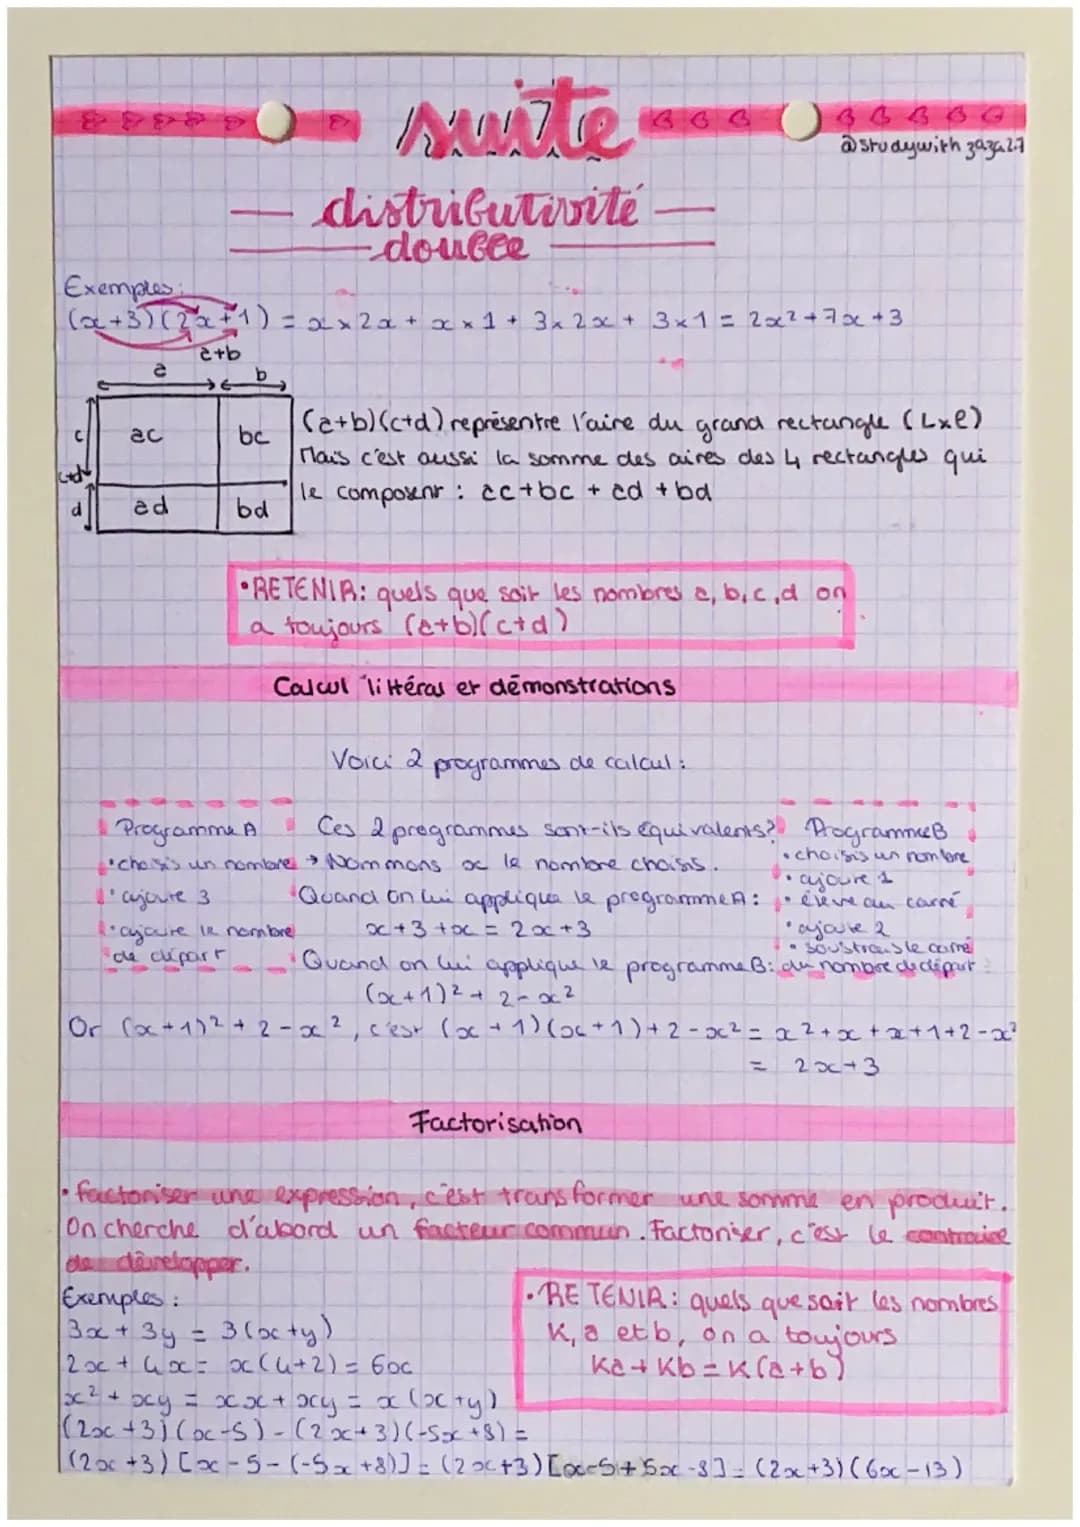 suite
@studywith zaza27
distributivité
double
Exemples:
(x+3)(2x+1) = x×2x + x×1 + 3×2x + 3×1 = 2x²+7x+3
a+b
a b
c ac bc
c+d
d ad bd
(a+b)(c+d) représentre l'aire du grand rectangle (L×l)
Mais c'est aussi la somme des aires des 4 rectangles qui
le composent : ac+bc + ad + bd
• RETENIR: quels que soit les nombres a, b, c, d on
a toujours (a+b)(c+d)
Calcul littéral et démonstrations
Voici 2 programmes de calcul :
Programme A
• choisis un nombre
• ajoute 3
• ajoute le nombre
de départ
Ces 2 programmes sont-ils équivalents?
→ Nommons x le nombre choisis.
Quand on lui applique le programme A :
x+3+x = 2x+3
Quand on lui applique le programme B:
(x+1)²+ 2-x²
Programme B
• choisis un nombre
• ajoute 1
• élève au carré
• ajoute 2
• soustrais le carré
du nombre de départ
Or (x+1)²+2-x², c'est (x+1)(x+1)+2-x² = x²+x+x+1+2-x²
= 2x+3
Factorisation
• factoriser une expression, c'est transformer une somme en produit.
On cherche d'abord un facteur commun. Factoriser, c'est le contraire
de développer.
Exemples :
3x + 3y = 3(x+y)
2x + 4x = x(4+2) = 6x
x² + xy = xx + xy = x(x+y)
(2x+3)(x-5)-(2x+3)(-5x+8) =
(2x+3)[x-5-(-5x+8)] = (2x+3)[x-5+5x-8] = (2x+3)(6x-13)
• RETENIR : quels que soit les nombres
K, a et b, on a toujours
Ka + Kb = K(a+b)